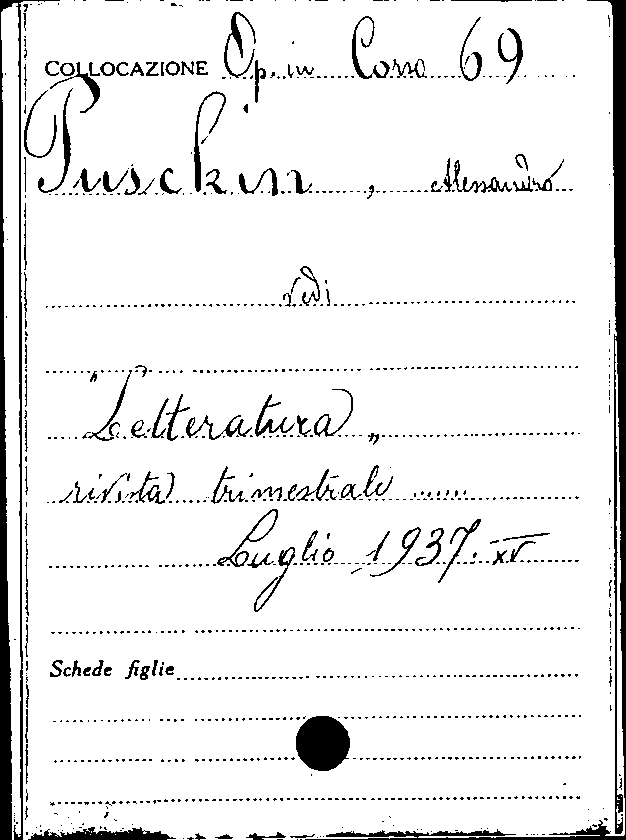 COLLOCAZIONE Op. in Corso 69
Puschin, Alessandro
vedi
"Letteratura„
rivista trimestrale ......
Luglio 1937. XV
Schede figlie